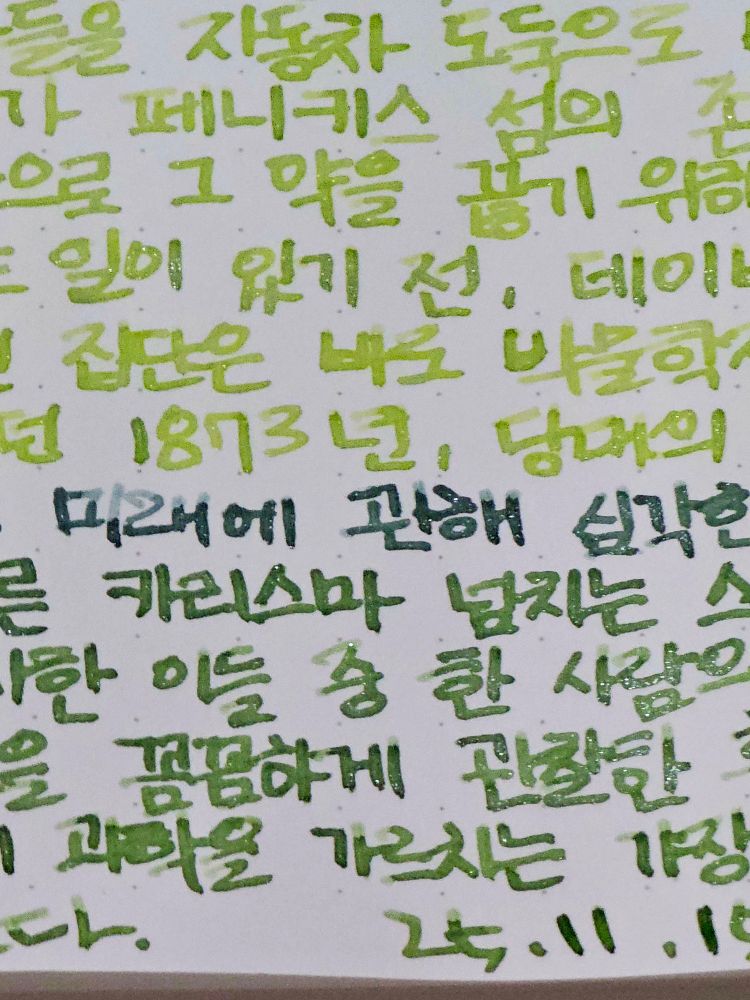 들을 자동차 도둑으로
가 페니키스 섬의
으로 그 약을 끊기 위해
일이 있기 전, 데이
집단은 바로 박물학
던 1873년, 당대의
미래에 관해 심각한
른 카리스마 넘치는 스
사한 이들 중 한 사람의
을 꼼꼼하게 관찰한
과학을 가르치는 가장
다. 25.11.